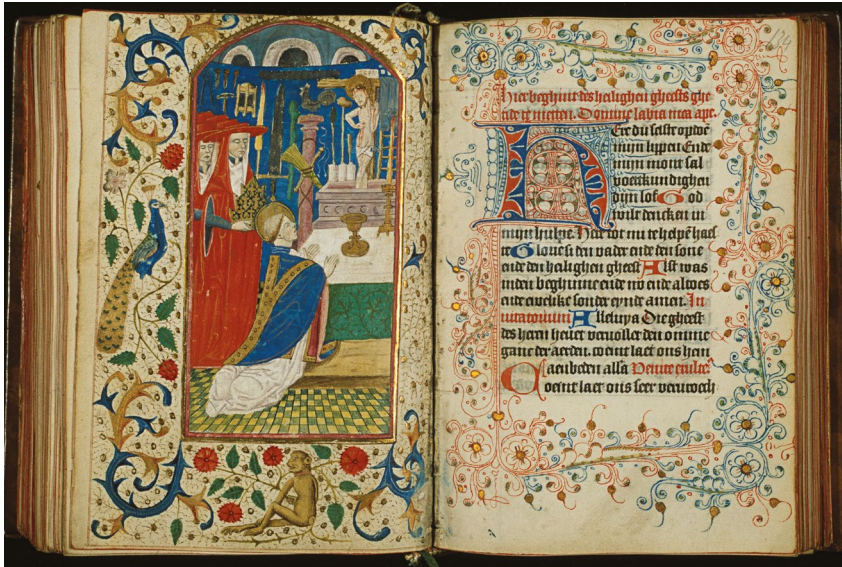 Hier beghint des heilighen gheests ghe
tide te metten. Domine labia mea ape.
HEre du salste opdoe
mijn lyppen Ende
mijn mont sal
voerkundighen
dijn lof God
wilt dencken in
mijn hulpe. Here tot mi te helpe haes
te Glorie si den vader ende den sone
ende den heilighen gheest Alst was
inden beghinne ende nv ende altoes
ende ewelike sonder eynde amen. In
uitatorium Alleluya Die gheest
des heren heuet veruollet den omme
ganc der aerden. coemt laet ons hem
aenbeden allsa Venite exulte
Coemt laet ons seer veruroech